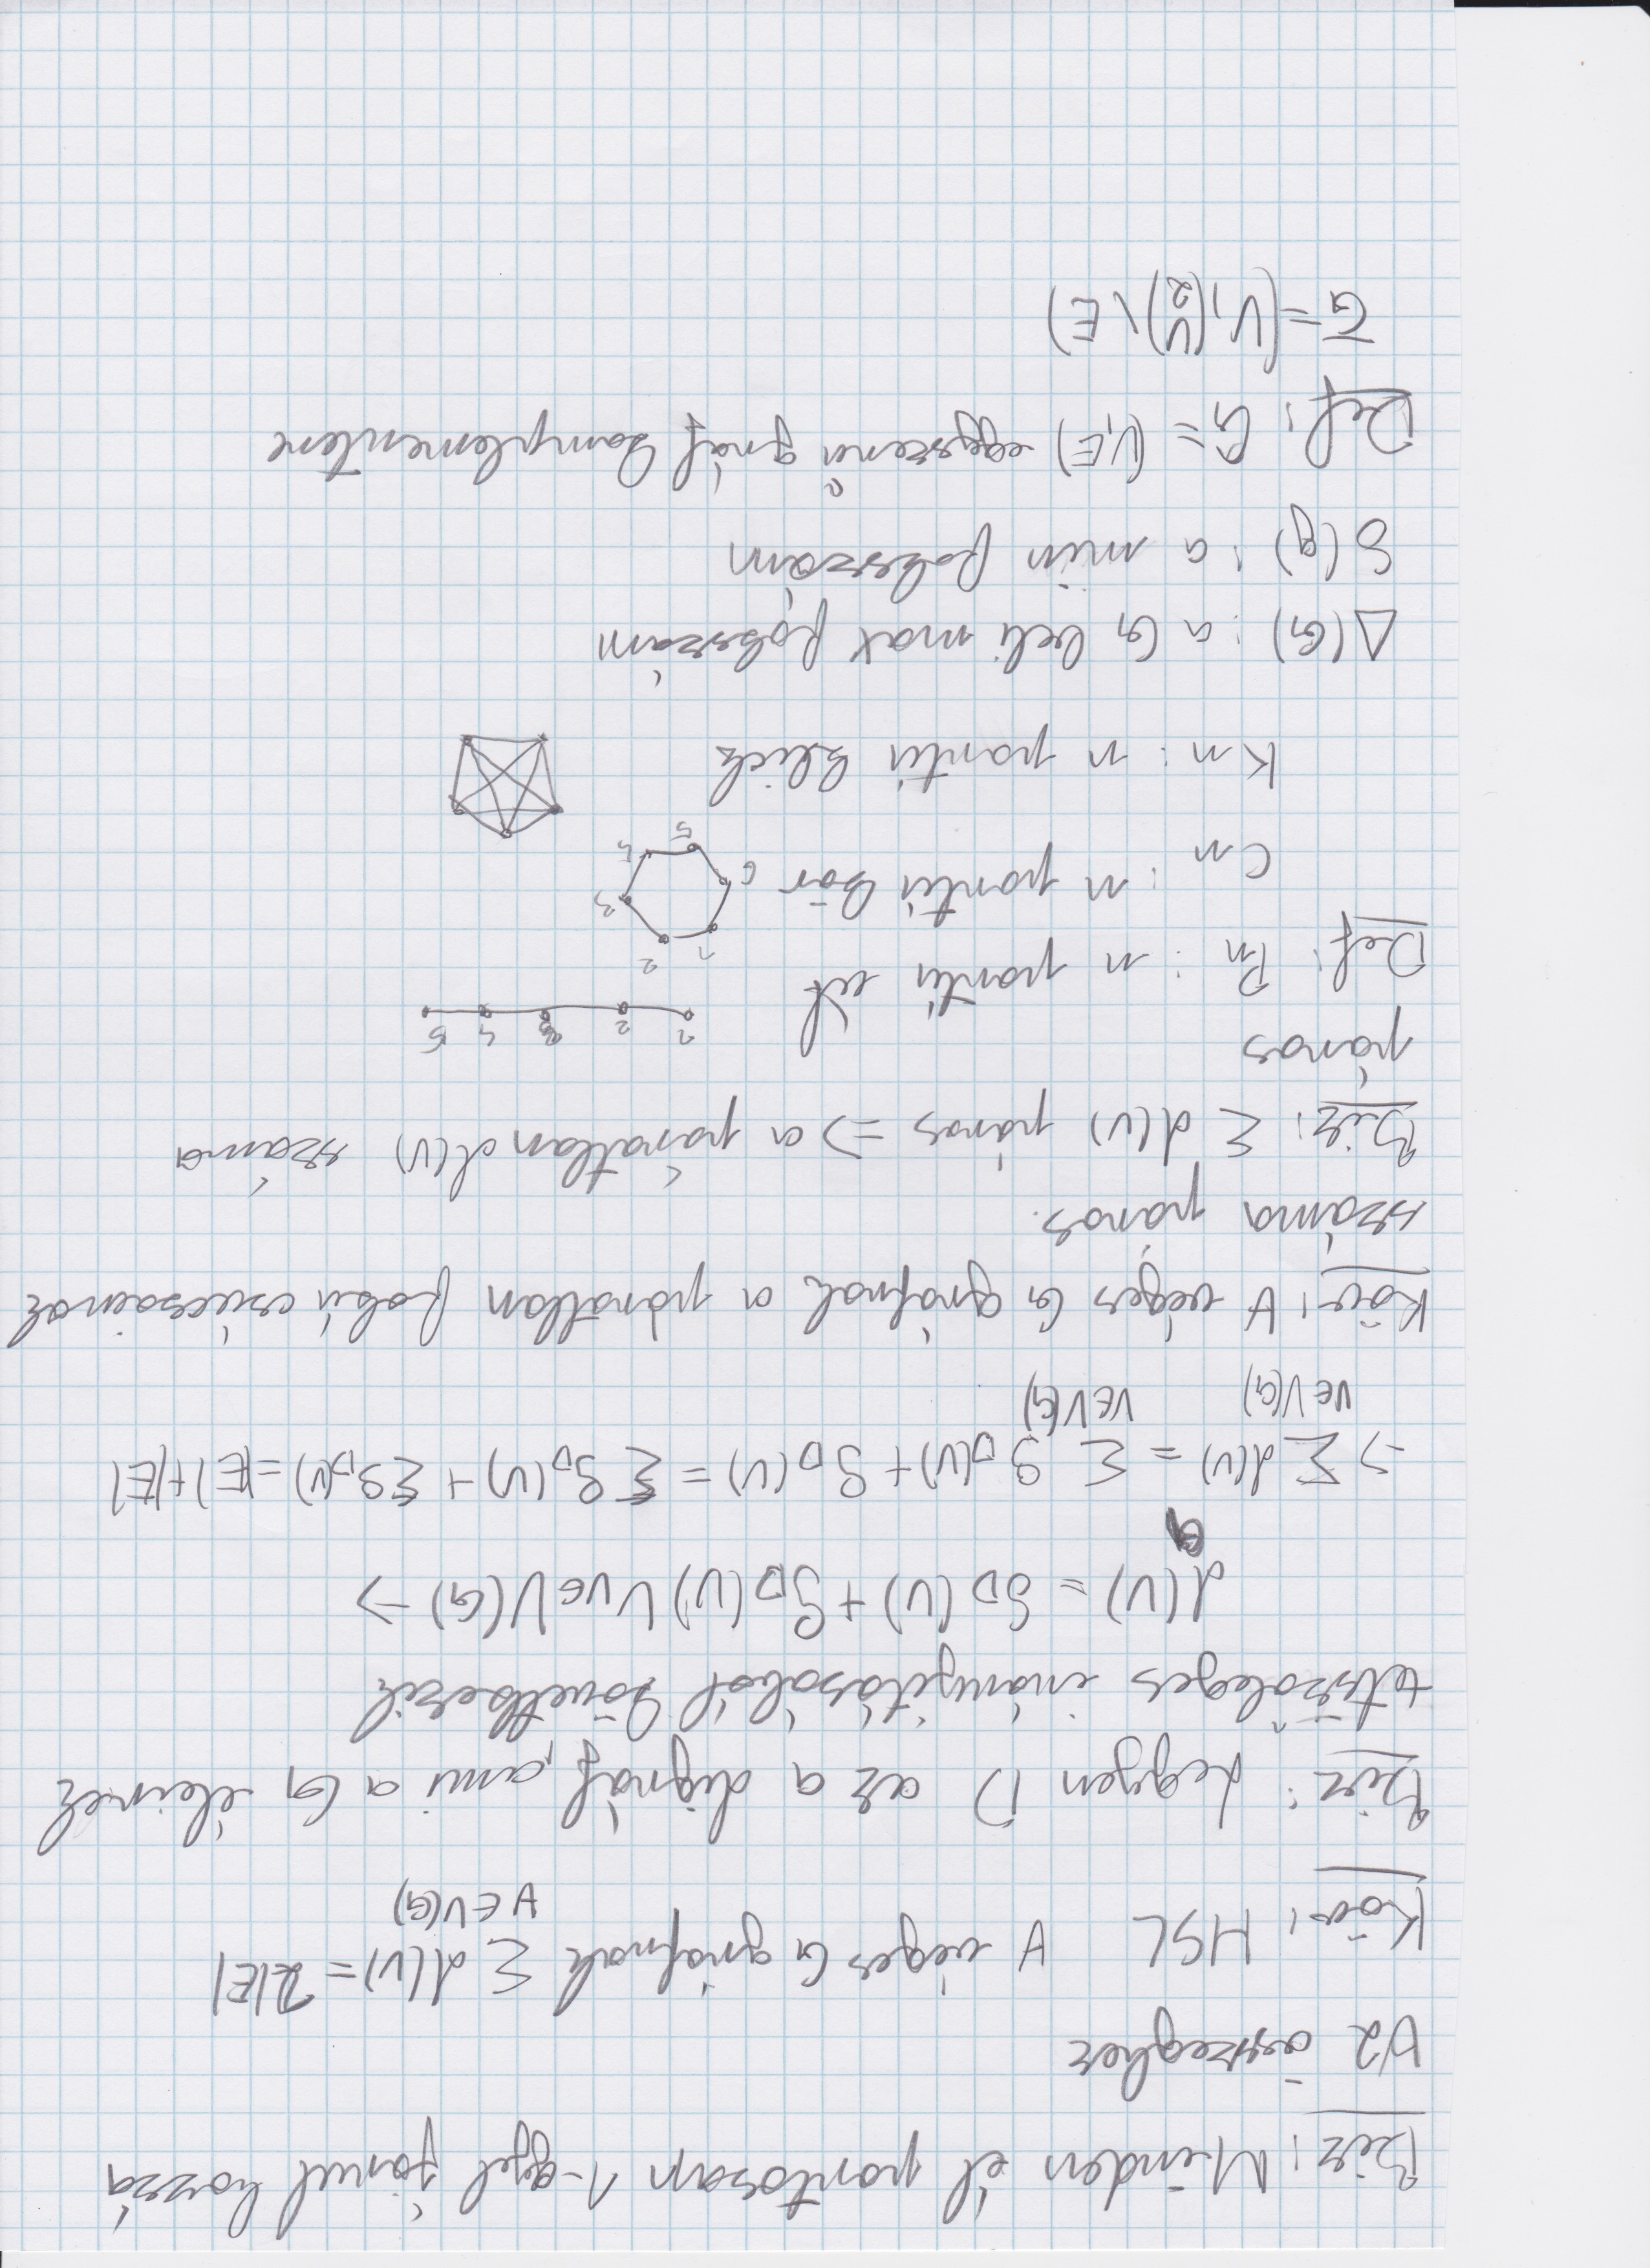 Biz: Minden él pontosan 1-gyel járul hozzá
összeghez
Köv: HSL ∀ véges G gráfnak Σ d(v) = 2|E|
∀ ∈ V(G)
Biz: Legyen D az a digráf, ami a G éleinek
tetszőleges irányításából következik
d(v) = δD(v) + ρD(v) ∀ v∈V(G) ⇒
G
⇒ Σ d(v) = Σ ρD(v) + δD(v) = Σ δD(v) + Σ ρD(v) = |E|+|E|
v∈V(G) v∈V(G)
Köv: ∀ véges G gráfnak a páratlan fokú csúcsainak
száma páros.
Biz: Σ d(v) páros ⇒ a páratlan d(v) száma
páros
Def: Pn : n pontú út
1 2 3 4 5
Cn : n pontú kör
1 2 3 4 5 6
Kn : n pontú klikk
Δ(G) : a G beli max fokszám
δ(g) : a min fokszám
Def: G = (V,E) egyszerű gráf komplementere
G̅ = (V, (V 2) \ E)